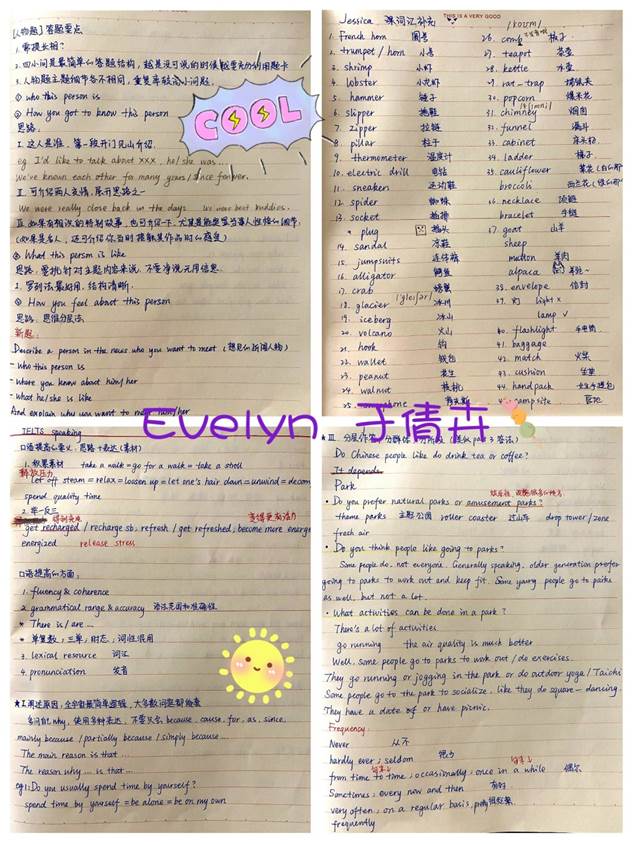 [人物题] 答题要点
1. 常提长相?
2. 四小问是最简单的答题结构, 越是没可说的时候越要充分利用题卡
3. 人物题主题细节各不相同, 重复率较高小问题.
① who this person is
② How you got to know this person
思路.
I. 这人是谁, 第一段开门见山介绍.
eg. I'd like to talk about xxx, he/she was...
We've known each other for many years / since forever.
II. 可介绍两人友情, 展开思路之一
We were really close back in the days. We were best buddies.
III. 如果有相识的特别故事, 也可介绍一下,
③ What this person is like
思路. 要找针对主题内容来说. 不要净说无用信息.
④ How you feel about this person
新题:
Describe a person in the news who you want to meet (想见的新闻人物)
- Who this person is
- where you know about him/her
- what he/she is like
And explain why you want to meet him/her
THIS IS A VERY GOOD
Jessica 课词汇补充
1. French horn 圆号
2. trumpet / horn 小号
3. shrimp 小虾
4. lobster 小龙虾
5. hammer 锤子
6. slipper 拖鞋
7. zipper 拉链
8. pillar 柱子
9. thermometer 温度计
10. electric drill 电钻
11. sneaker 运动鞋
12. spider 蜘蛛
13. socket 插排
* plug 插头
14. sandal 凉鞋
15. jumpsuits 连体裤
16. alligator 鳄鱼
17. crab 螃蟹
18. glacier 冰川
19. iceberg 冰山
20. volcano 火山
21. hook 钩
22. wallet 钱包
23. peanut 花生
24. walnut 核桃
/koʊm/
26. comb 梳子
27. teapot 茶壶
28. kettle 水壶
29. rat-trap 捕鼠夹
30. popcorn 爆米花
31. chimney 烟囱
32. funnel 漏斗
33. cabinet 床头柜
34. ladder 梯子
35. cauliflower 菜花
broccoli 西兰花
36. necklace 项链
bracelet 手链
37. goat 山羊
sheep
mutton 羊肉
alpaca
38. envelope 信封
39. 灯 light x
lamp √
40. flashlight 手电筒
41. baggage
42. match 火柴
43. cushion 坐垫
44. handpack
45. campsite 营地
Evelyn 于倩卉
COOL
IELTS speaking
口语提高的要义. 思路 + 表达 (素材)
1. 积累素材 take a walk = go for a walk = take a stroll
释放压力
let off steam = relax = loosen up = let one's hair down = unwind =
spend quality time
2. 举一反三
get recharged / recharge sb, refresh / get refreshed, become more energe
energized release stress
口语提高的方面:
1. fluency & coherence
2. grammatical range & accuracy 语法范围和准确性
* There is / are ...
* 单复数, 三单, 时态, 词性混用
3. lexical resource 词汇
4. pronunciation 发音
★ I. 阐述原因,
多问 why, 使用多种表达, 不要只会 because, cause, for, as, since,
mainly because / partially because / simply because...
The main reason is that ...
The reason why ... is that ...
eg1: Do you usually spend time by yourself?
spend time by yourself = be alone = be on my own
Do Chinese people like do drink tea or coffee?
It depends
Park
• Do you prefer natural parks or amusement parks?
theme parks 主题公园 roller coaster 过山车 drop tower / zone
fresh air
• Do you think people like going to parks?
Some people do, not everyone. Generally speaking, older generation prefer
going to parks to work out and keep fit. Some young people go to parks
as well, but not a lot.
• What activities can be done in a park?
There's a lot of activities
go running the air quality is much better
Well, some people go to parks to work out / do exercises.
They go running or jogging in the park or do outdoor yoga / Taichi
Some people go to the park to socialize, like they do square-dancing.
They have a date or have picnic.
Frequency:
Never 从不
hardly ever; seldom 很少
from time to time; occasionally; once in a while 偶尔
Sometimes; every now and then 有时
very often; on a regular basis,
frequently